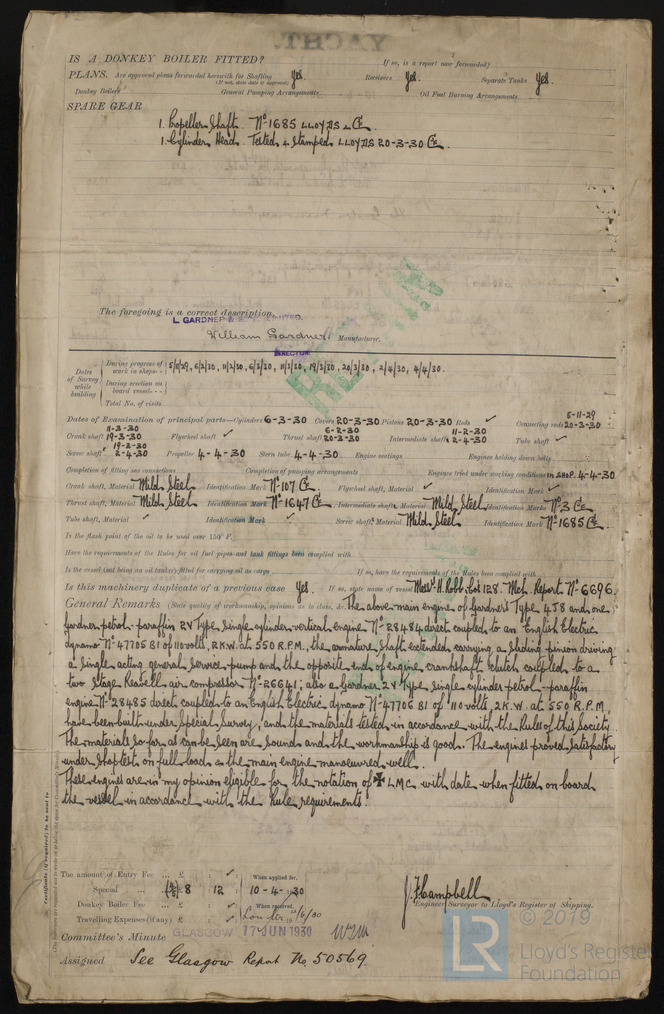 YACHT.
IS A DONKEY BOILER FITTED? If so, is a report now forwarded?
PLANS. Are approved plans forwarded herewith for Shafting Yes. Receivers Yes. Separate Tanks Yes.
(If not, state date of approval)
Donkey Boilers General Pumping Arrangements Oil Fuel Burning Arrangements
SPARE GEAR
1. Propeller Shaft. No 1685 LLOYDS
1. Cylinder Head. Tested & Stamped LLOYDS 20-3-30
The foregoing is a correct description,
L. GARDNER LIMITED.
William Gardner Manufacturer.
DIRECTOR
Dates of Survey while building
During progress of work in shops - - 6/2/30, 11/2/30, 6/3/30, 19/3/30, 20/3/30, 2/4/30, 4/4/30.
During erection on board vessel - - -
Total No. of visits
5-11-29
Dates of Examination of principal parts—Cylinders 6-3-30 Covers 20-3-30 Pistons 20-3-30 Rods ✓ Connecting rods 20-3-30
6-2-30 11-2-30
Crank shaft 19-3-30 Flywheel shaft ✓ Thrust shaft 20-3-30 Intermediate shafts 2-4-30 Tube shaft ✓
19-3-30
Screw shaft 2-4-30 Propeller 4-4-30 Stern tube 4-4-30 Engine seatings Engines holding down bolts
Completion of fitting sea connections Completion of pumping arrangements Engines tried under working conditions IN SHOP. 4-4-30
Crank shaft, Material Mild Steel Identification Mark No 107 Flywheel shaft, Material ✓ Identification Mark ✓
Thrust shaft, Material Mild Steel Identification Mark No 1647 Intermediate shafts, Material Mild Steel Identification Marks No 3
Tube shaft, Material ✓ Identification Mark ✓ Screw shaft, Material Mild Steel Identification Mark No 1685
Is the flash point of the oil to be used over 150° F.
Have the requirements of the Rules for oil fuel pipes and tank fittings been complied with
Is the vessel (not being an oil tanker) fitted for carrying oil as cargo If so, have the requirements of the Rules been complied with
Is this machinery duplicate of a previous case Yes. If so, state name of vessel H. Robb 128. Mch. Report No 6696.
General Remarks (State quality of workmanship, opinions as to class, The above main engine of Gardner's Type 4J8 and one
Gardner petrol-paraffin 2V Type single cylinder vertical engine No 28484 direct coupled to an English Electric
dynamo No 47705 B1 of 110 volts, 2 K.W. at 550 R.P.M., the armature shaft extended carrying a sliding pinion driving
a single acting general service pump and the opposite end of engine crankshaft, clutch coupled to a
two stage Reavell air compressor No 26641; also a Gardner 2V Type single cylinder petrol-paraffin
engine No 28485 direct coupled to an English Electric dynamo No 47706 B1 of 110 volts, 2 K.W. at 550 R.P.M.
have been built under Special Survey, and the materials tested in accordance with the Rules of this Society.
The materials so far as can be seen are sound and the workmanship is good. The engines proved satisfactory
under shop test on full load & the main engine manoeuvred well.
These engines are in my opinion eligible for the notation of ✠ LMC with date when fitted on board
the vessel in accordance with the Rule requirements.
The amount of Entry Fee ... £ : ✓ When applied for,
Special ... £ 8 12 10-4-30
Donkey Boiler Fee ... £ : ✓ When received,
Travelling Expenses (if any) £ ✓ /6/30
J. F. Campbell
Engineer Surveyor to Lloyd's Register of Shipping.
Committee's Minute GLASGOW 17 JUN 1930
Assigned See Glasgow Report No 50569.
Certificate (if required) to be sent to
© 2019
LR
Lloyd's Register
Foundation